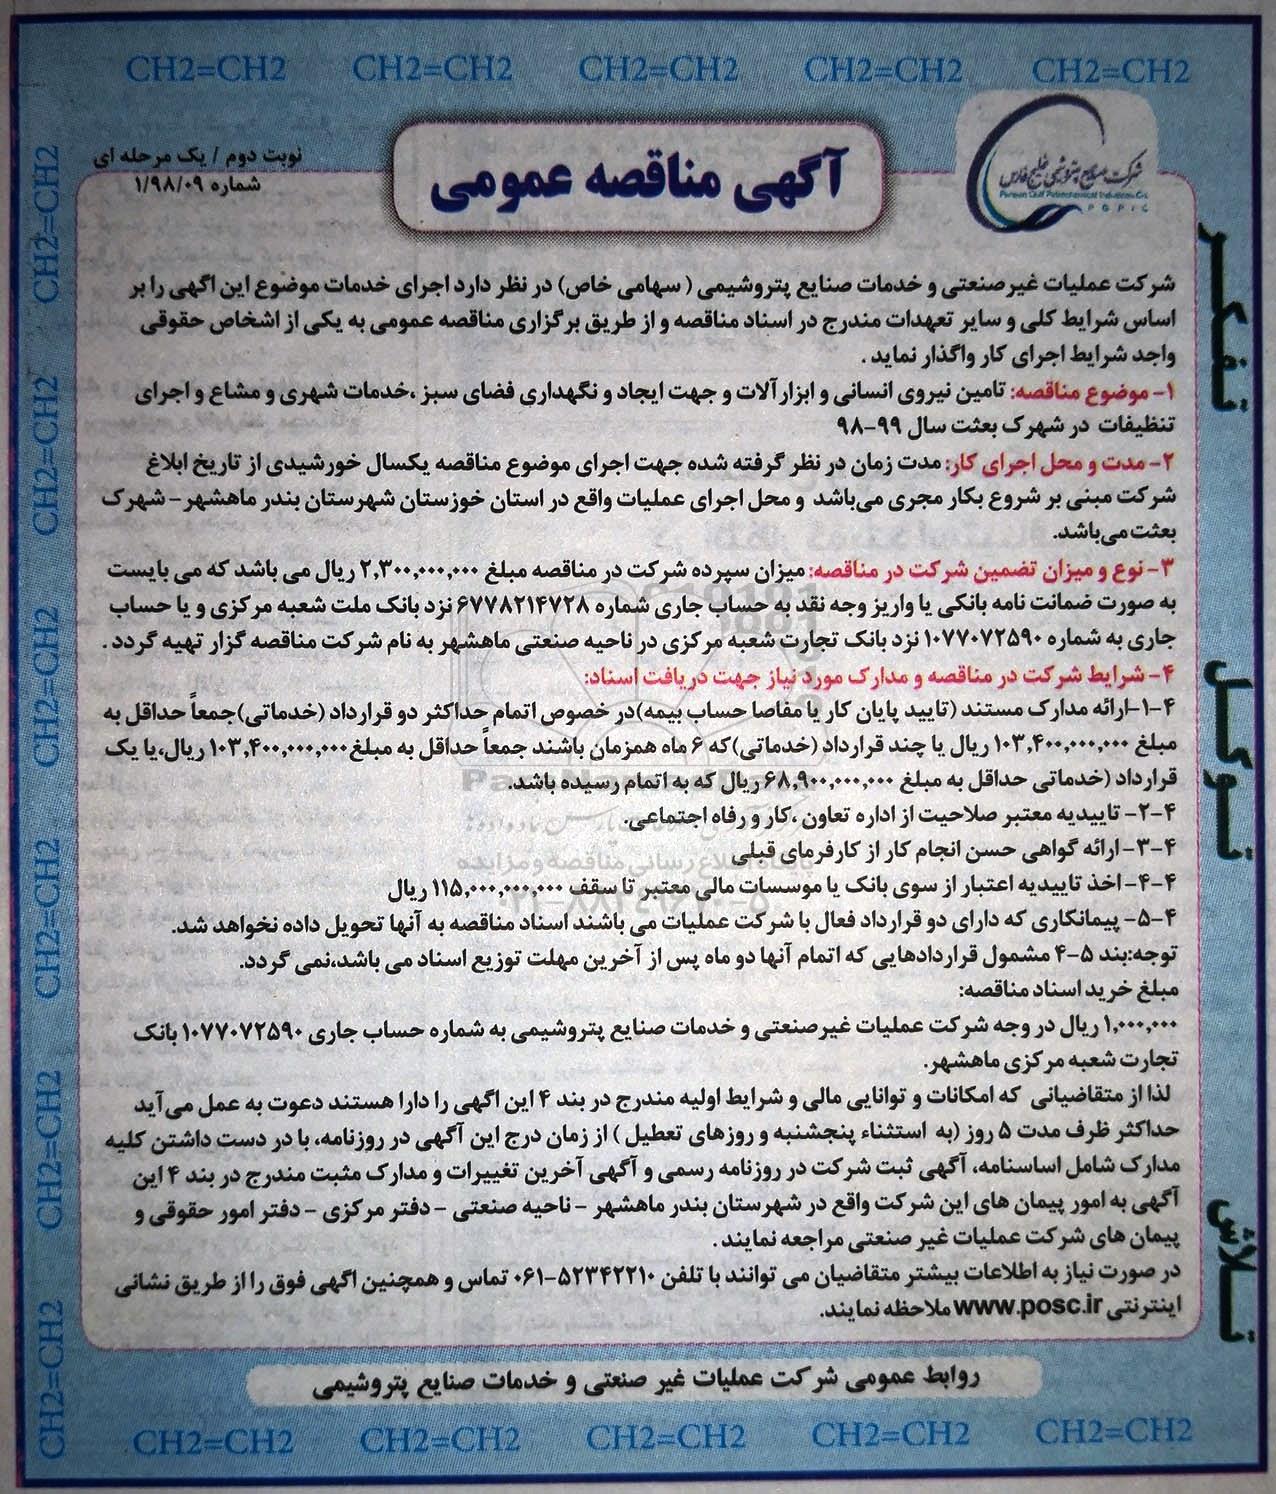 CH2=CH2 CH2=CH2 CH2=CH2 CH2=CH2 CH2=CH2
شرکت صنایع پتروشیمی خلیج فارس
Persian Gulf Petrochemical Industries Co.
PGPIC
آگهی مناقصه عمومی
نوبت دوم / یک مرحله ای
شماره ۱/۹۸/۰۹
شرکت عملیات غیرصنعتی و خدمات صنایع پتروشیمی ( سهامی خاص) در نظر دارد اجرای خدمات موضوع این اگهی را بر
اساس شرایط کلی و سایر تعهدات مندرج در اسناد مناقصه و از طریق برگزاری مناقصه عمومی به یکی از اشخاص حقوقی
واجد شرایط اجرای کار واگذار نماید .
۱- موضوع مناقصه: تامین نیروی انسانی و ابزارآلات و جهت ایجاد و نگهداری فضای سبز ،خدمات شهری و مشاع و اجرای
تنظیفات در شهرک بعثت سال ۹۹-۹۸
۲- مدت و محل اجرای کار: مدت زمان در نظر گرفته شده جهت اجرای موضوع مناقصه یکسال خورشیدی از تاریخ ابلاغ
شرکت مبنی بر شروع بکار مجری می‌باشد و محل اجرای عملیات واقع در استان خوزستان شهرستان بندر ماهشهر- شهرک
بعثت می‌باشد.
۳- نوع و میزان تضمین شرکت در مناقصه: میزان سپرده شرکت در مناقصه مبلغ ۲,۳۰۰,۰۰۰,۰۰۰ ریال می باشد که می بایست
به صورت ضمانت نامه بانکی یا واریز وجه نقد به حساب جاری شماره ۶۷۷۸۲۱۴۷۲۸ نزد بانک ملت شعبه مرکزی و یا حساب
جاری به شماره ۱۰۷۷۰۷۲۵۹۰ نزد بانک تجارت شعبه مرکزی در ناحیه صنعتی ماهشهر به نام شرکت مناقصه گزار تهیه گردد .
۴- شرایط شرکت در مناقصه و مدارک مورد نیاز جهت دریافت اسناد:
۴-۱-ارائه مدارک مستند (تایید پایان کار یا مفاصا حساب بیمه)در خصوص اتمام حداکثر دو قرارداد (خدماتی)جمعاً حداقل به
مبلغ ۱۰۳,۴۰۰,۰۰۰,۰۰۰ ریال یا چند قرارداد (خدماتی)که ۶ ماه همزمان باشند جمعاً حداقل به مبلغ۱۰۳,۴۰۰,۰۰۰,۰۰۰ ریال،یا یک
قرارداد (خدماتی حداقل به مبلغ ۶۸,۹۰۰,۰۰۰,۰۰۰ ریال که به اتمام رسیده باشد.
۴-۲- تاییدیه معتبر صلاحیت از اداره تعاون ،کار و رفاه اجتماعی.
۴-۳- ارائه گواهی حسن انجام کار از کارفرمای قبلی
۴-۴- اخذ تاییدیه اعتبار از سوی بانک یا موسسات مالی معتبر تا سقف ۱۱۵,۰۰۰,۰۰۰,۰۰۰ ریال
۴-۵- پیمانکاری که دارای دو قرارداد فعال با شرکت عملیات می باشند اسناد مناقصه به آنها تحویل داده نخواهد شد.
توجه:بند ۵-۴ مشمول قراردادهایی که اتمام آنها دو ماه پس از آخرین مهلت توزیع اسناد می باشد،نمی گردد.
مبلغ خرید اسناد مناقصه:
۱,۰۰۰,۰۰۰ ریال در وجه شرکت عملیات غیرصنعتی و خدمات صنایع پتروشیمی به شماره حساب جاری ۱۰۷۷۰۷۲۵۹۰ بانک
تجارت شعبه مرکزی ماهشهر.
لذا از متقاضیانی که امکانات و توانایی مالی و شرایط اولیه مندرج در بند ۴ این اگهی را دارا هستند دعوت به عمل می‌آید
حداکثر ظرف مدت ۵ روز (به استثناء پنجشنبه و روزهای تعطیل ) از زمان درج این آگهی در روزنامه، با در دست داشتن کلیه
مدارک شامل اساسنامه، آگهی ثبت شرکت در روزنامه رسمی و آگهی آخرین تغییرات و مدارک مثبت مندرج در بند ۴ این
آگهی به امور پیمان های این شرکت واقع در شهرستان بندر ماهشهر - ناحیه صنعتی - دفتر مرکزی - دفتر امور حقوقی و
پیمان های شرکت عملیات غیر صنعتی مراجعه نمایند .
در صورت نیاز به اطلاعات بیشتر متقاضیان می توانند با تلفن ۵۲۳۴۲۲۱۰-۰۶۱ تماس و همچنین اگهی فوق را از طریق نشانی
اینترنتی www.posc.ir ملاحظه نمایند.
روابط عمومی شرکت عملیات غیر صنعتی و خدمات صنایع پتروشیمی
تفکر
توکل
تلاش
CH2=CH2 CH2=CH2 CH2=CH2 CH2=CH2 CH2=CH2 CH2=CH2
CH2=CH2 CH2=CH2 CH2=CH2 CH2=CH2 CH2=CH2